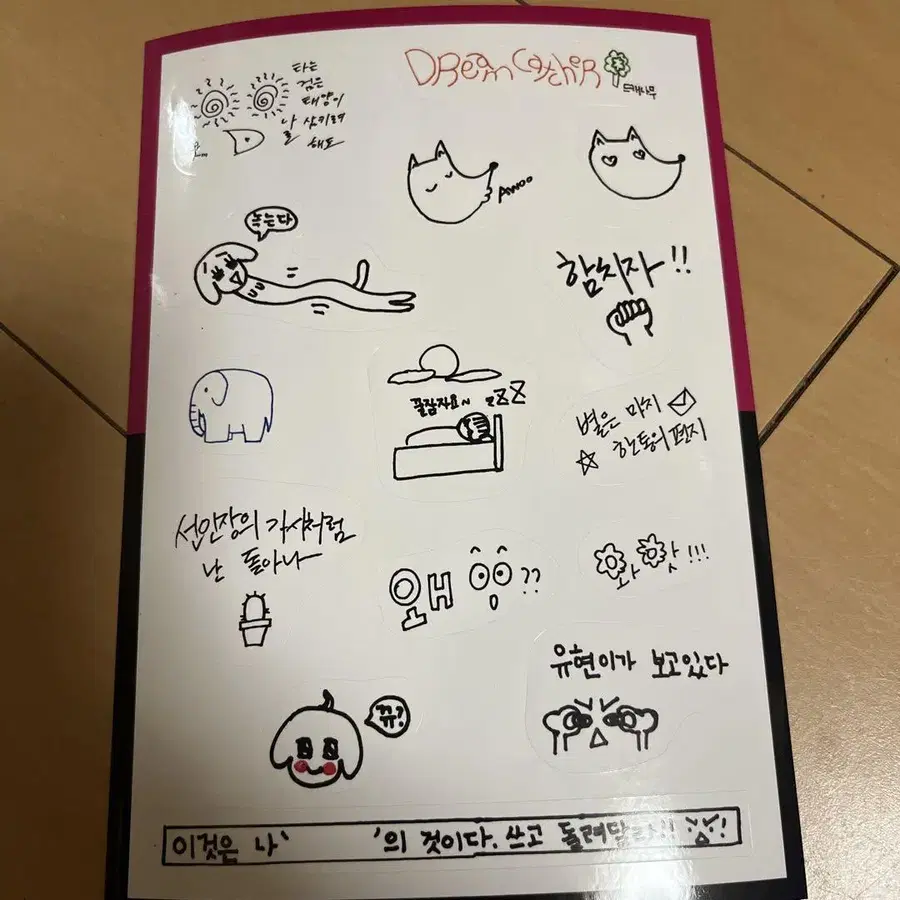 DReam CatcheR
드캐나무
타는
검은
태양이
날 삼키려
해도
AWOO
녹는다
합치자!!
꿀잠자요~ zZZ
별은 마치
한 통의 편지
선인장의 가시처럼
난 돋아나
왜 ??
유현이가 보고있다
뀨?
이것은 나' '의 것이다. 쓰고 돌려달라!!